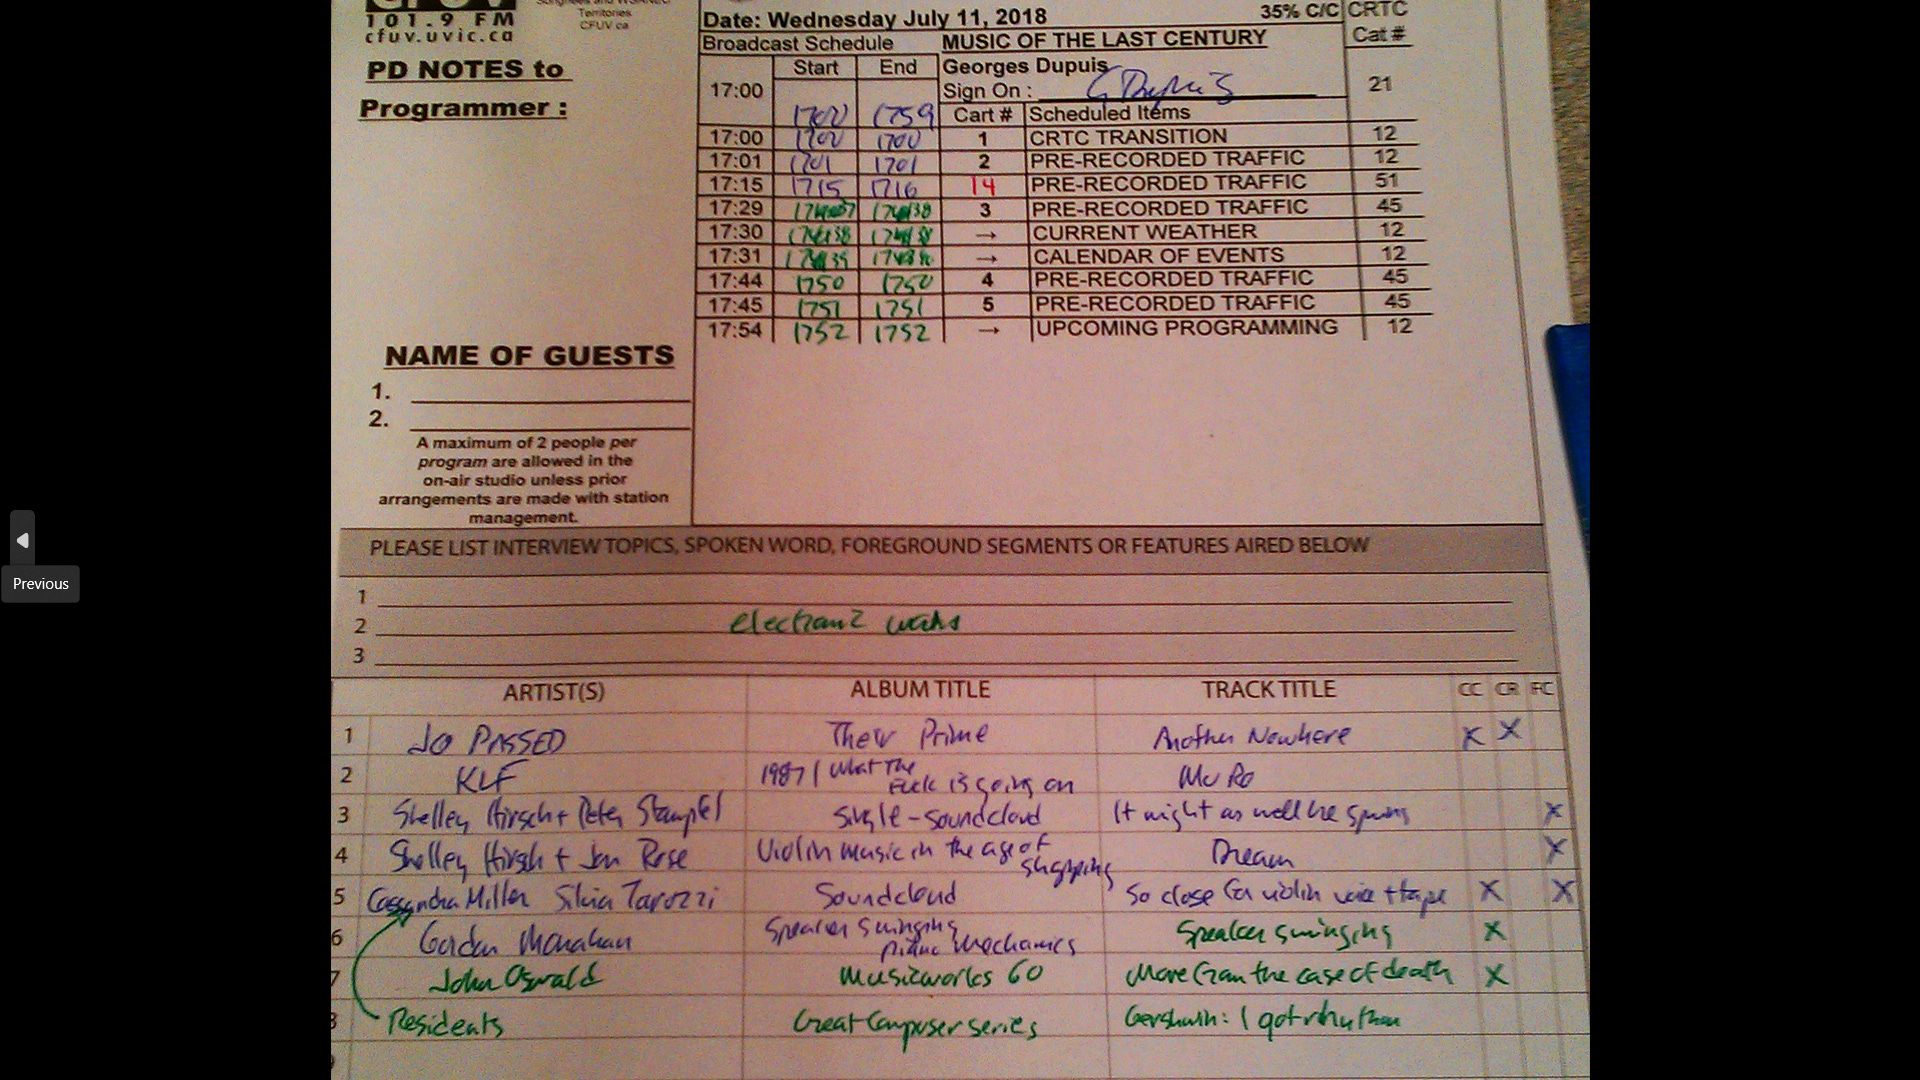 101.9 FM
cfuv.uvic.ca
Territories
CFUV.ca
PD NOTES to
Programmer :
Date: Wednesday July 11, 2018 35% C/C CRTC
Broadcast Schedule MUSIC OF THE LAST CENTURY Cat #
Start End Georges Dupuis
17:00 Sign On : G Dupuis 21
1700 1759 Cart # Scheduled Items
17:00 1700 1700 1 CRTC TRANSITION 12
17:01 1701 1701 2 PRE-RECORDED TRAFFIC 12
17:15 1715 1716 14 PRE-RECORDED TRAFFIC 51
17:29 3 PRE-RECORDED TRAFFIC 45
17:30 → CURRENT WEATHER 12
17:31 → CALENDAR OF EVENTS 12
17:44 1750 1750 4 PRE-RECORDED TRAFFIC 45
17:45 1751 1751 5 PRE-RECORDED TRAFFIC 45
17:54 1752 1752 → UPCOMING PROGRAMMING 12
NAME OF GUESTS
1.
2.
A maximum of 2 people per
program are allowed in the
on-air studio unless prior
arrangements are made with station
management.
PLEASE LIST INTERVIEW TOPICS, SPOKEN WORD, FOREGROUND SEGMENTS OR FEATURES AIRED BELOW
1
2
3
ARTIST(S) ALBUM TITLE TRACK TITLE CC CR FC
1 Jo PASSED Their Prime Another Nowhere X X
2 KLF 1987 / What The Fuck is going on Mu
3 Shelley Hirsch + Peter Stampfel Single - Soundcloud It might as well be spring X
4 Shelley Hirsch + Jon Rose Violin music in the age of shopping Dream X
5 Cassandra Miller Silvia Tarozzi Soundcloud So close for violin voice + tape X X
6 Gordon Monahan Speaker Swinging Piano Mechanics Speaker swinging X
7 John Oswald Musicworks 60 More from the case of death X
8 Residents Great Composer series Gershwin: I got rhythm
Previous